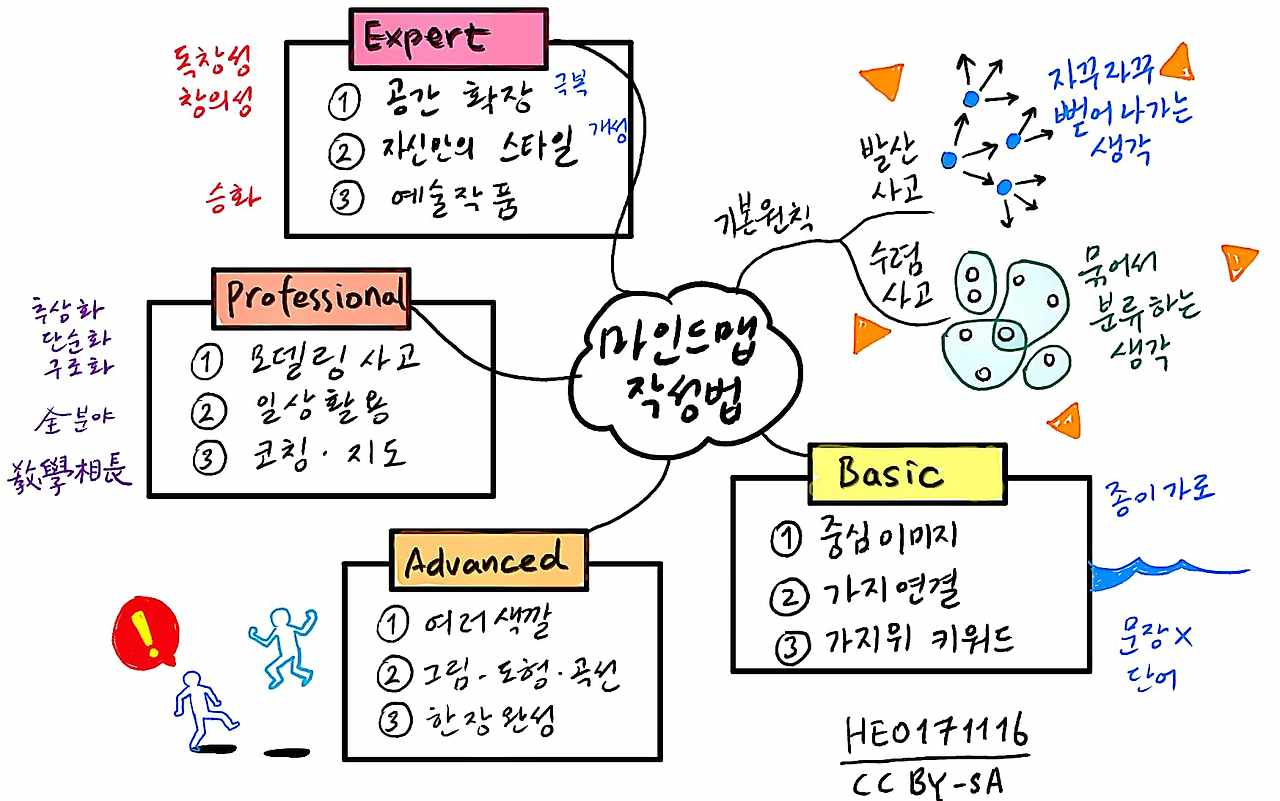 마인드맵
작성법
기본원칙
발산
사고
자꾸자꾸
뻗어 나가는
생각
수렴
사고
묶어서
분류하는
생각
Basic
① 중심 이미지
종이 가로
② 가지 연결
③ 가지위 키워드
문장 X
단어
Advanced
① 여러 색깔
② 그림·도형·곡선
③ 한장 완성
!
Professional
① 모델링 사고
추상화
단순화
구조화
② 일상 활용
全분야
③ 코칭·지도
敎學相長
Expert
① 공간 확장 극복
독창성
창의성
② 자신만의 스타일 개성
③ 예술작품
승화
HEO171116
CC BY-SA